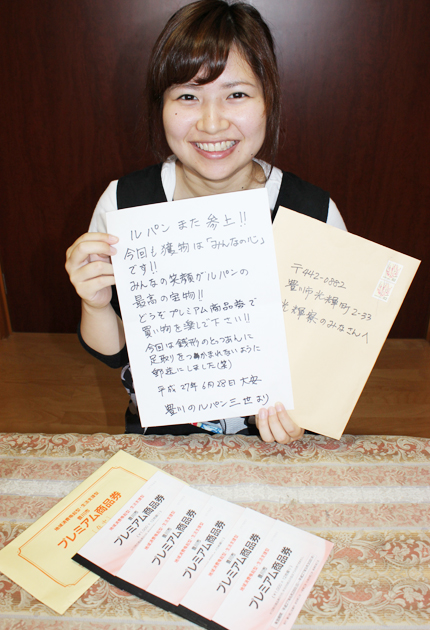 ルパンまた参上!!
今回も獲物は「みんなの心」
です!!
みんなの笑顔がルパンの
最高の宝物!!
どうぞプレミアム商品券で
買い物を楽しで下さい!!
今回は銭形のとっつあんに
足取りをつかまれないように
郵送にしました(笑)
平成27年6月28日 大安
豊川のルパン三世より
〒442-0852
豊川市光輝町2-33
光輝寮のみなさんへ
プレミアム商品券
プレミアム商品券
プレミアム商品券
プレミアム商品券
プレミアム商品券
プレミアム商品券